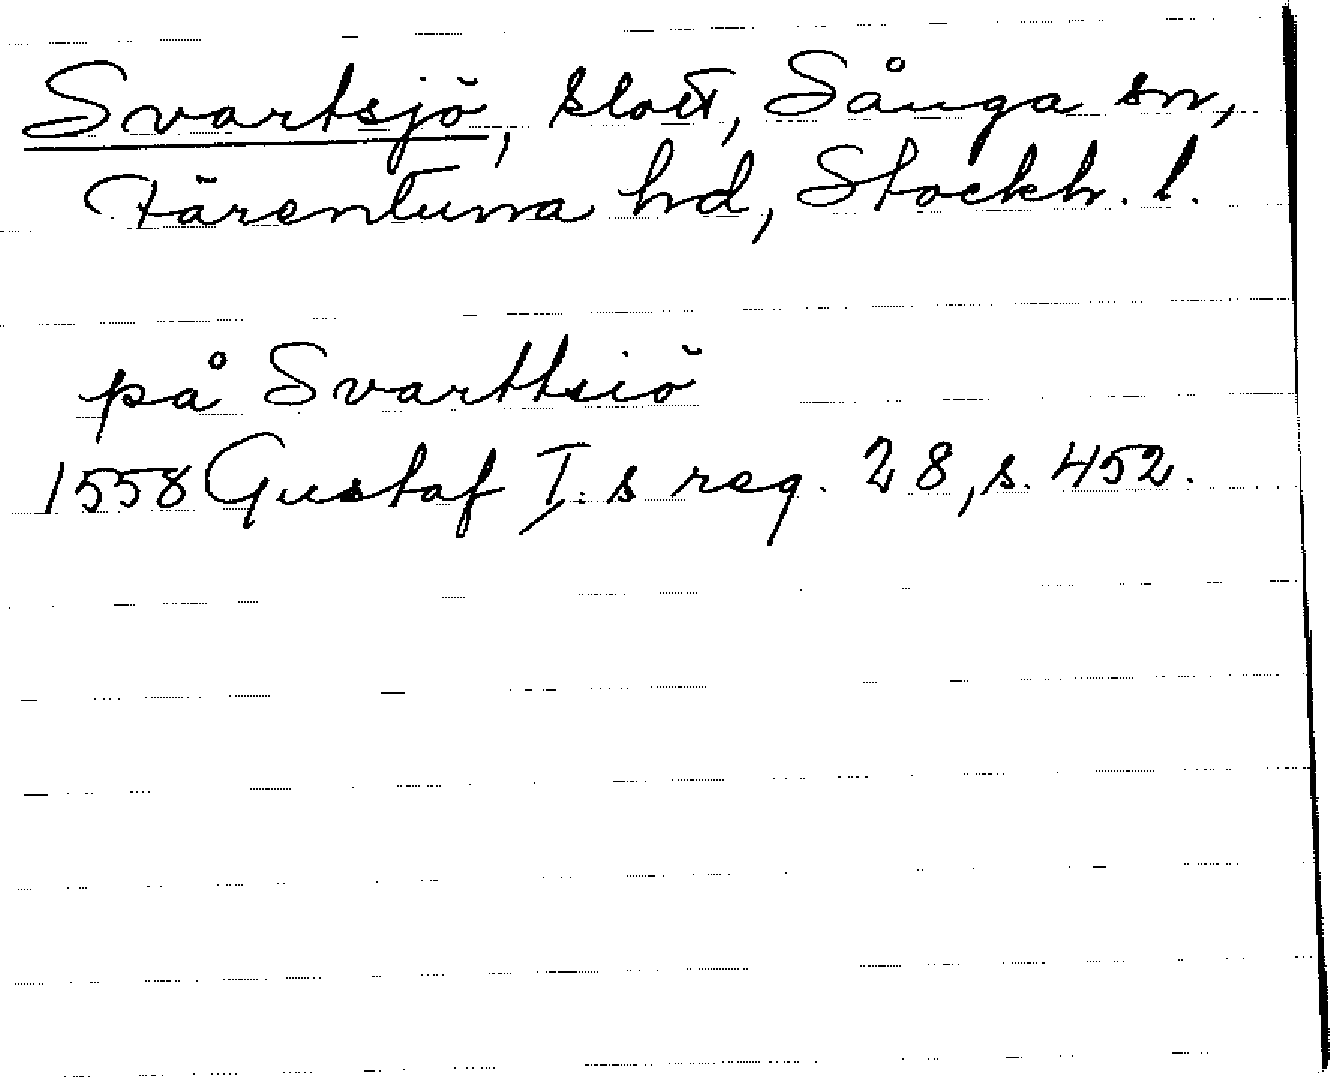 Svartsjö, slott, Sånga sn,
Färentuna hd, Stockh. l.
på Svarttsiö
1558 Gustaf I:s reg. 28, s. 452.